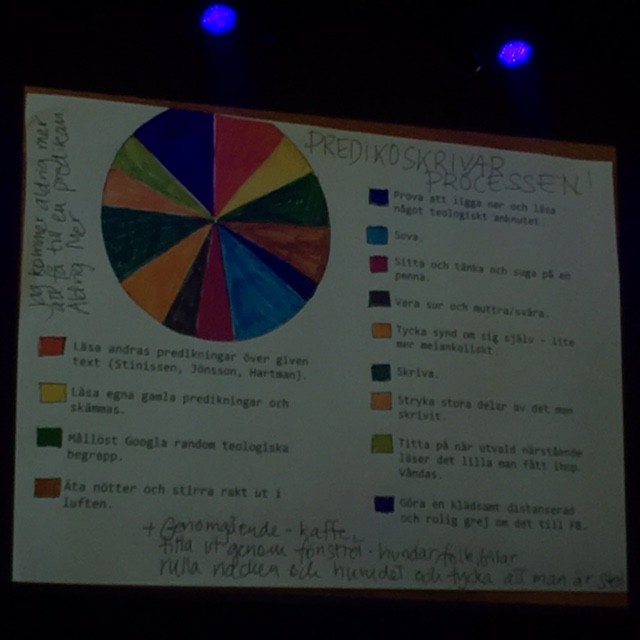 PREDIKOSKRIVAR
PROCESSEN!
Jag kommer aldrig mer
att få till en predikan
Aldrig mer
Läsa andras predikningar över given
text (Stinissen, Jönsson, Hartman).
Läsa egna gamla predikningar och
skämmas.
Mållöst Googla random teologiska
begrepp.
Äta nötter och stirra rakt ut i
luften.
Prova att ligga ner och läsa
något teologiskt anknutet.
Sova.
Sitta och tänka och suga på en
penna.
Vara sur och muttra/svära.
Tycka synd om sig själv - lite
mer melankoliskt
Skriva.
Stryka stora delar av det man
skrivit.
Titta på när utvald närstående
läser det lilla man fått ihop.
Våndas.
Göra en klädsamt distanserad
och rolig grej om det till FB.
+ Genomgående - kaffe
titta ut genom fönstret - hundar/folk/bilar
rulla nacken och huvudet och tycka att man är